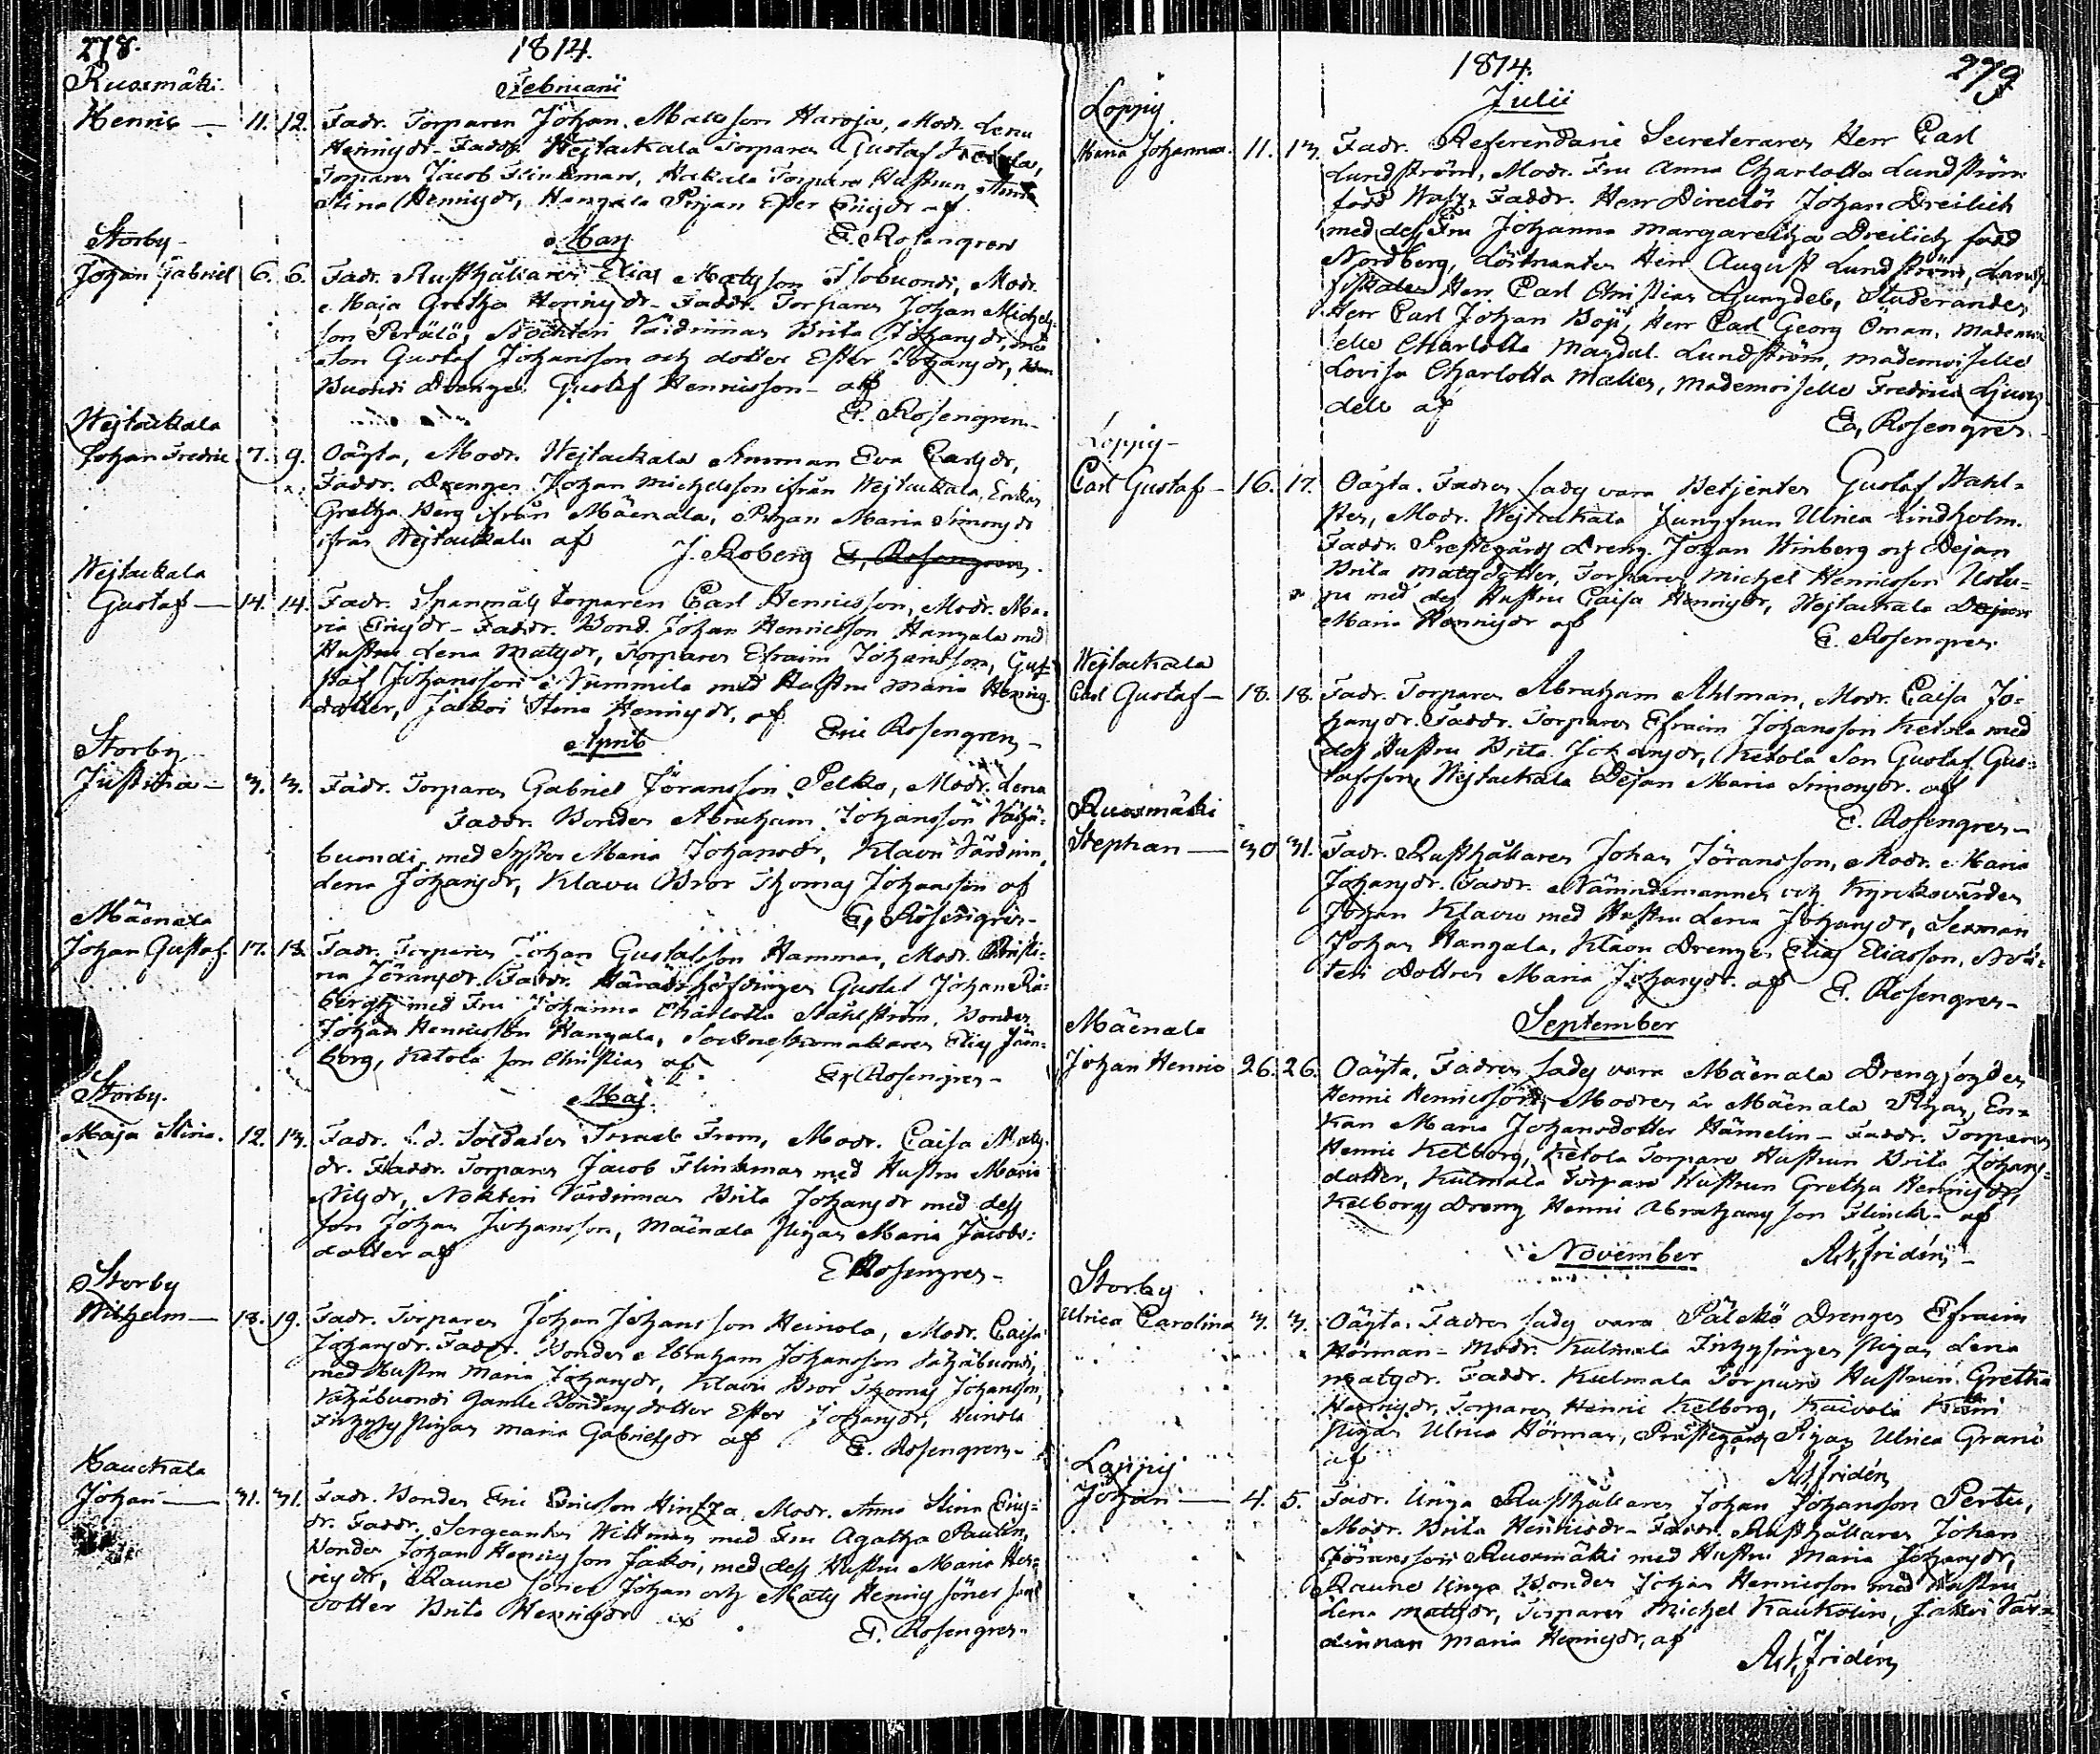 278.
1814.
Februarii
Ruosmäki.
Henric — 11. 12. Fadr. Torparen Johan Matsson Haroja, Modr. Lena
Henricsdr. Faddr. Wejtackala Torparen Gustaf
Torparen Jacob Flinkman, Torpare Hustrun Anna
Stina Henricsdr, Hangala Pigan Ester Ericsdr af
E. Rosengren
Mars
Storby
Johan Gabriel 6. 6. Fadr. Rusthållaren Elias Matsson Isobuondi, Modr.
Maja Gretha Henricsdr. Faddr. Torparen Johan Michels-
son Perälä, Värdinnan Brita Johansdr, med
Son Gustaf Johansson och dotter Ester Johansdr,
Buondi Drengen Gustaf Henricsson af
E. Rosengren
Wejtackala
Johan Fredric 7. 9. Oägta, Modr. Wejtackala Eva Carlsdr,
Faddr. Drengen Johan Michelsson ifrån Wejtackala, Enkan
Gretha Berg ifrån Mäenala, Pigan Maria Simonsdr
ifrån Wejtackala af J. Roberg E. Rosengren
Wejtackala
Gustaf — 14. 14. Fadr. Spanmåls torparen Carl Henricsson, Modr. Ma-
ria Ericsdr. Faddr. Bond. Johan Henricsson Hangala med
Hustru Lena Matsdr, Torparen Efraim Johansson, Gus-
taf Johansson i Nummila med Hustru Maria Henrics
dotter, Jakoi Stina Henricsdr, af Eric Rosengren
April
Storby
Justina — 3. 3. Fadr. Torparen Gabriel Jöransson Pelko, Modr. Lena
Faddr. Bonden Abraham Johansson Vähä-
buondi, med Syster Maria Johansdr, Klavu Värdinn,
Lena Johansdr, Klavu Bror Thomas Johansson af
E. Rosengren
Mäenala
Johan Gustaf. 17. 18. Fadr. Torparen Johan Gustafsson Hammar, Modr. Christi-
na Jöransdr. Faddr. Häradshöfdingen Gustaf Johan
med Fru Johanna Charlotta Stålström, Bonden
Johan Henricsson Hangala, Sockneskomakaren Elias
borg, Ketola son Christian af
E. Rosengren
Maj
Storby.
Maja Stina. 12. 13. Fadr. Soldaten Israel From, Modr. Caisa Mats-
dr. Faddr. Torparen Jacob Flinkman med Hustru Maria
Nilsdr, Nokteri Värdinnan Brita Johansdr med dess
son Johan Johansson, Mäenala Pigan Maria Jacobs-
dotter af
E Rosengren
Storby
Wilhelm — 18. 19. Fadr. Torparen Johan Johansson Heinola, Modr. Caisa
Johansdr. Faddr. Bonden Abraham Johansson Vähäbuondi
med Hustru Maria Johansdr, Klavu Bror Thomas Johansson,
Vähäbuondi Gamle Bondens dotter Ester Johansdr, Heinola
Inhyses Pigan Maria Gabrielsdr af
E. Rosengren
Kauckala
Johan — 31. 31. Fadr. Bonden Eric Ericsson Hintza, Modr. Anna Stina Erics-
dr. Faddr. Sergeanten Wittman med Fru Agatha Paulin,
Bonden Johan Henricsson Jakoi, med dess Hustru Maria Hen-
ricsdr, Raune söner Johan och Mats Henrics söner samt
dotter Brita Henricsdr af
E. Rosengren
1814.
279
Julii
Loppis
Johanna 11. 13. Fadr. Referendarie Secreteraren Herr Carl
Lundström, Modr. Fru Anna Charlotta Lundström
född Faddr. Herr Directör Johan Dreilich
med dess Fru Johanna Margaretha Dreilich född
Nordberg, Löjtnanten Herr August Lundström, Lands-
fiskalen Herr Carl Christian Ljungdell, Studeranden
Herr Carl Johan Boji, Herr Carl Georg Öman, Mademoi-
selle Charlotta Magdal. Lundström, Mademoiselle
Lovisa Charlotta Mæller, Mademoiselle Fredrica Ljung-
dell af
E. Rosengren
Loppis
Carl Gustaf — 16. 17. Oägta. Fadren säges vara Betjenten Gustaf Wahl-
sten, Modr. Wejtackala Jungfrun Ulrica Lindholm.
Faddr. Prestegårds Dreng. Johan Winberg och Dejan
Brita Matsdotter, Torparen Michel Henricsson
med dess Hustru Caisa Henricsdr, Wejtackala Dejan
Maria Henricsdr af
E. Rosengren
Wejtackala
Carl Gustaf — 18. 18. Fadr. Torparen Abraham Ahlman, Modr. Caisa Jo-
hansdr. Faddr. Torparen Efraim Johansson Ketola med
dess Hustru Brita Johansdr, Ketola Son Gustaf Gus-
tafsson, Wejtackala Dejan Maria Simonsdr. af
E. Rosengren
Ruosmäki
Stephan — 30 31. Fadr. Rusthållaren Johan Jöransson, Modr. Maria
Johansdr. Faddr. Nämndemannen och Kyrkovärden
Johan Klavu med Hustru Lena Johansdr, Sexman
Johan Hangala, Klavu Drengen Elias Eliasson,
teri Dottren Maria Johansdr. af E. Rosengren
September
Mäenala
Johan Henric 26. 26. Oägta. Fadren säges vara Mäenala Dreng
Henric Henricsson, Modren är Mäenala Pigan, En-
kan Maria Johansdotter Hämelin. Faddr. Torparen
Henric Kelborg, Ketola Torpare Hustrun Brita Johans-
dotter, Kulmala Torpare Hustrun Gretha Henricsdr,
Kelborgs Dreng Henric Abrahams son Flinck af
A. N. Fridén
November
Storby
Ulrica Carolina 3. 3. Oägta. Fadren säges vara Pälckö Drengen Efraim
Hörman. Modr. Kulmala Inhysinges Pigan Lena
Matsdr. Faddr. Kulmala Torpare Hustrun Gretha
Henricsdr, Torparen Henric Kelborg, Kaivola
Pigan Ulrica Hörman, Prästegårds Pigan Ulrica Grani
af
A. N. Fridén
Loppis
Johan — 4. 5. Fadr. Unga Rusthållaren Johan Johansson Pertu,
Modr. Brita Henricsdr. Faddr. Rusthållaren Johan
Jöransson Ruosmäki med Hustru Maria Johansdr,
Raune Unga Bonden Johan Henricsson med Hustru
Lena Matsdr, Torparen Michel Kaukolin, Jakoi Vär-
dinnan Maria Henricsdr, af
A. N. Fridén